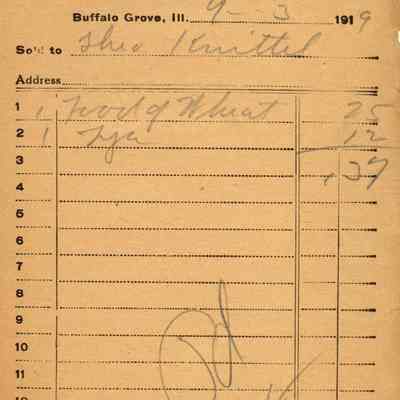 Buffalo Grove, Ill. 9-3 1919
Sold to Theo Knittel
Address
1 1 Food of Wheat 25
2 1 Lye 12
3 .37
4
5
6
7
8
Pd
9
10
11